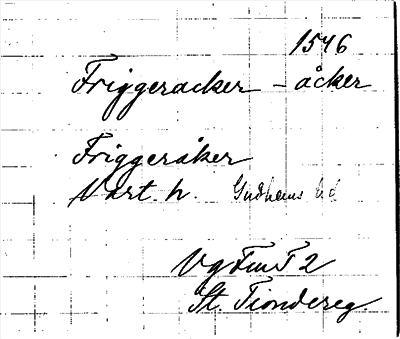 1546
Friggeracker – åcker
Friggeråker
Vart. h. Gudhems hd
Vg Fm T 2
St. Tiondereg.